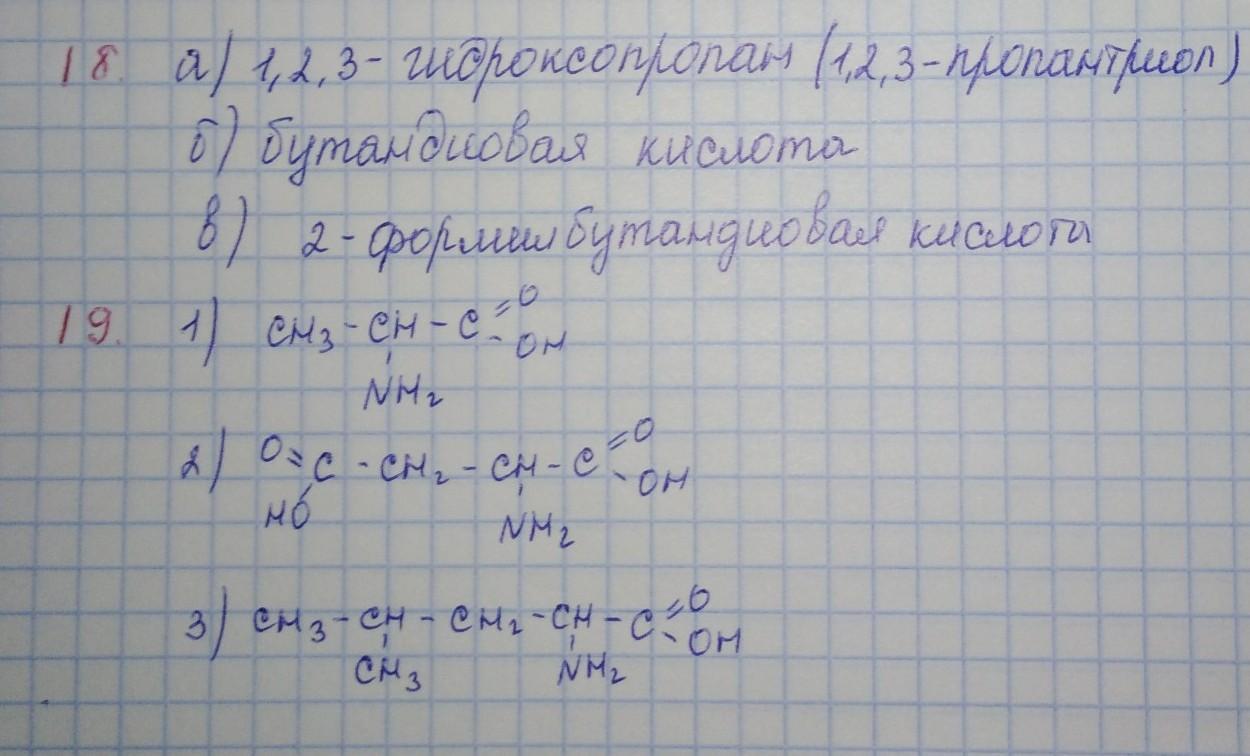 18. а) 1,2,3-гидроксопропан (1,2,3-пропантриол)
б) бутандиовая кислота
в) 2-формилбутандиовая кислота
19. 1) CH₃-CH-C=O
-OH
NH₂
2) O=C-CH₂-CH-C=O
-OH
HO NH₂
3) CH₃-CH-CH₂-CH-C=O
-OH
CH₃ NH₂